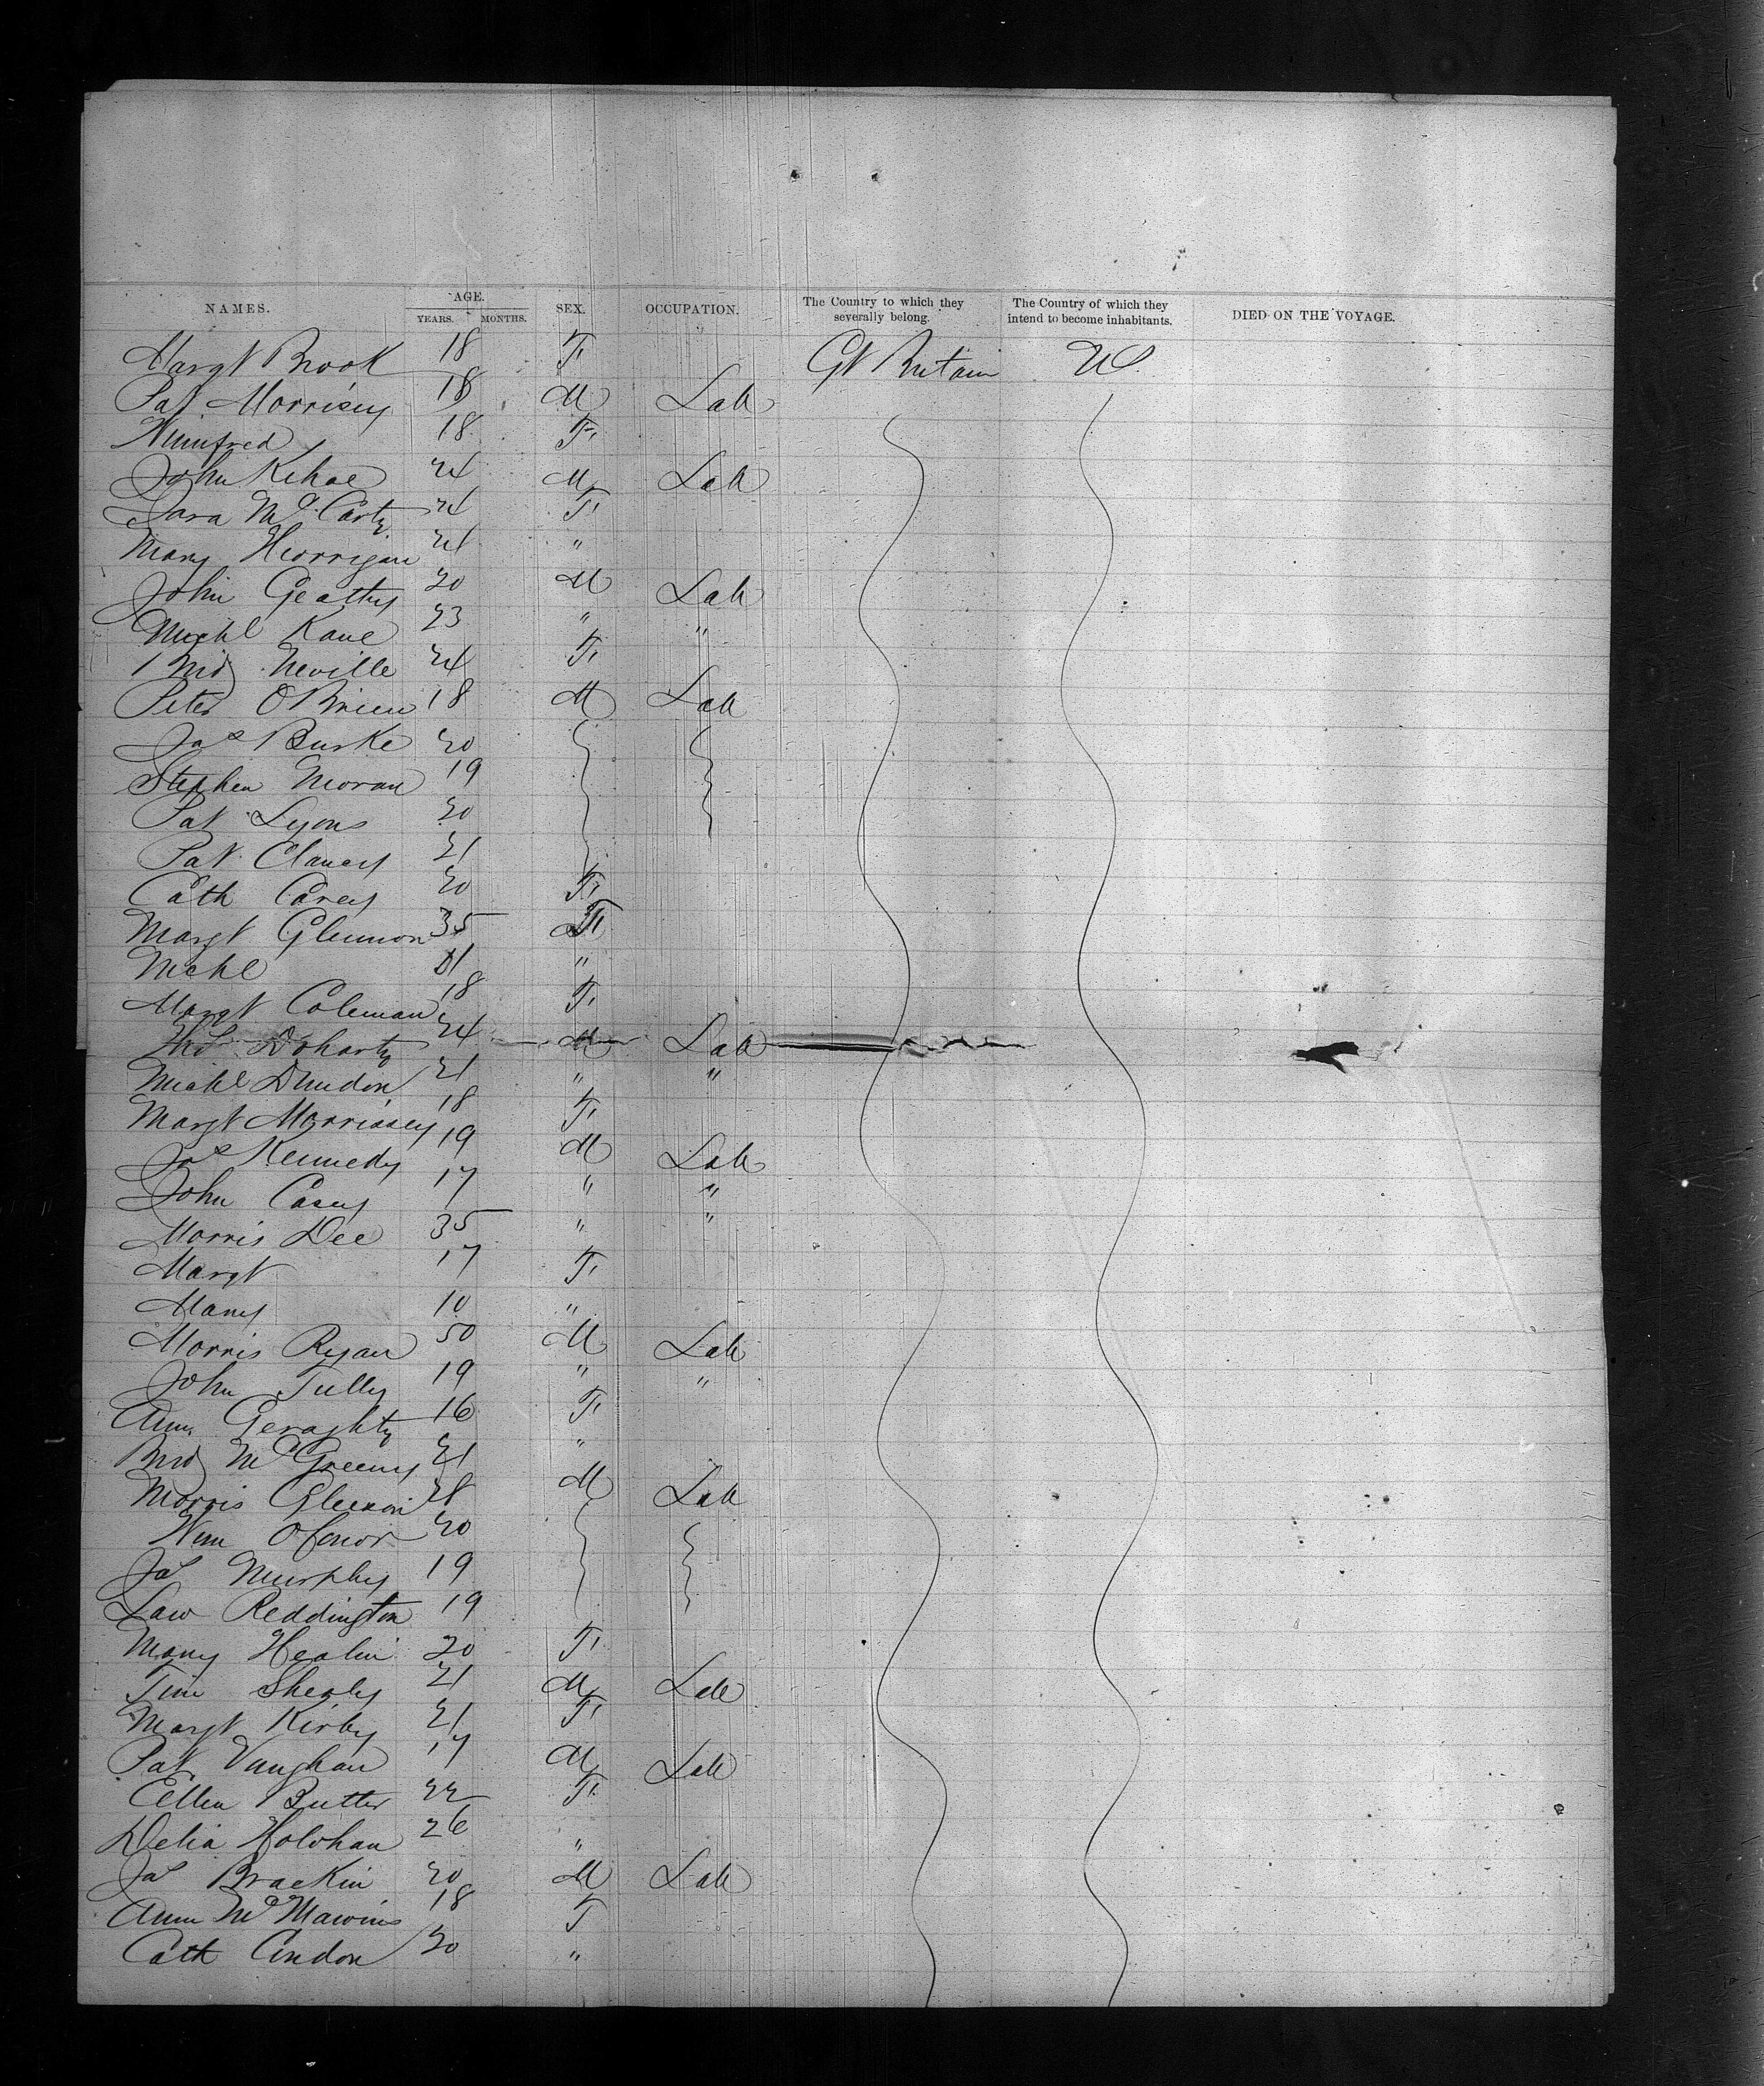 NAMES. AGE. SEX. OCCUPATION. The Country to which they severally belong. The Country of which they intend to become inhabitants. DIED ON THE VOYAGE.
YEARS. MONTHS.
Margt Brook 18 F Gt Britain US.
Pat Morrisey 18 M Lab
Winnifred 18 F
John Kehoe 24 M Lab
Sara McCarty 24 F
Mary Horrigan 21 "
John Geathy 20 M Lab
Michl Kane 23 " "
Brid Neville 24 F
Peter OBrien 18 M Lab
Jas Burke 20
Stephen Moran 19
Pat Lyons 20
Pat Clancy 21
Cath Carey 20 F
Margt Glennon 35 F
Michl 11 "
Margt Coleman 18 F
Thos Doharty 24 M Lab
Michl Dundon 21 " "
Margt Morrissey 18 F
Jas Kennedy 19 M Lab
John Casey 17 " "
Morris Dee 35 " "
Margt 17 F
Mary 10 "
Morris Ryan 50 M Lab
John Tully 19 " "
Ann Geraghty 16 F
Brid McGreeny 21 "
Morris Gleeson 28 M Lab
Wm OConor 20
Jas Murphy 19
Law Reddington 19
Mary Healin 20 F
Tim Shealy 21 M Lab
Margt Kirby 21 F
Pat Vaughan 17 M Lab
Ellen Butter 22 F
Delia Holohan 26 "
Jas Brackin 20 M Lab
Ann Mc 18 F
Cath Condon 20 "